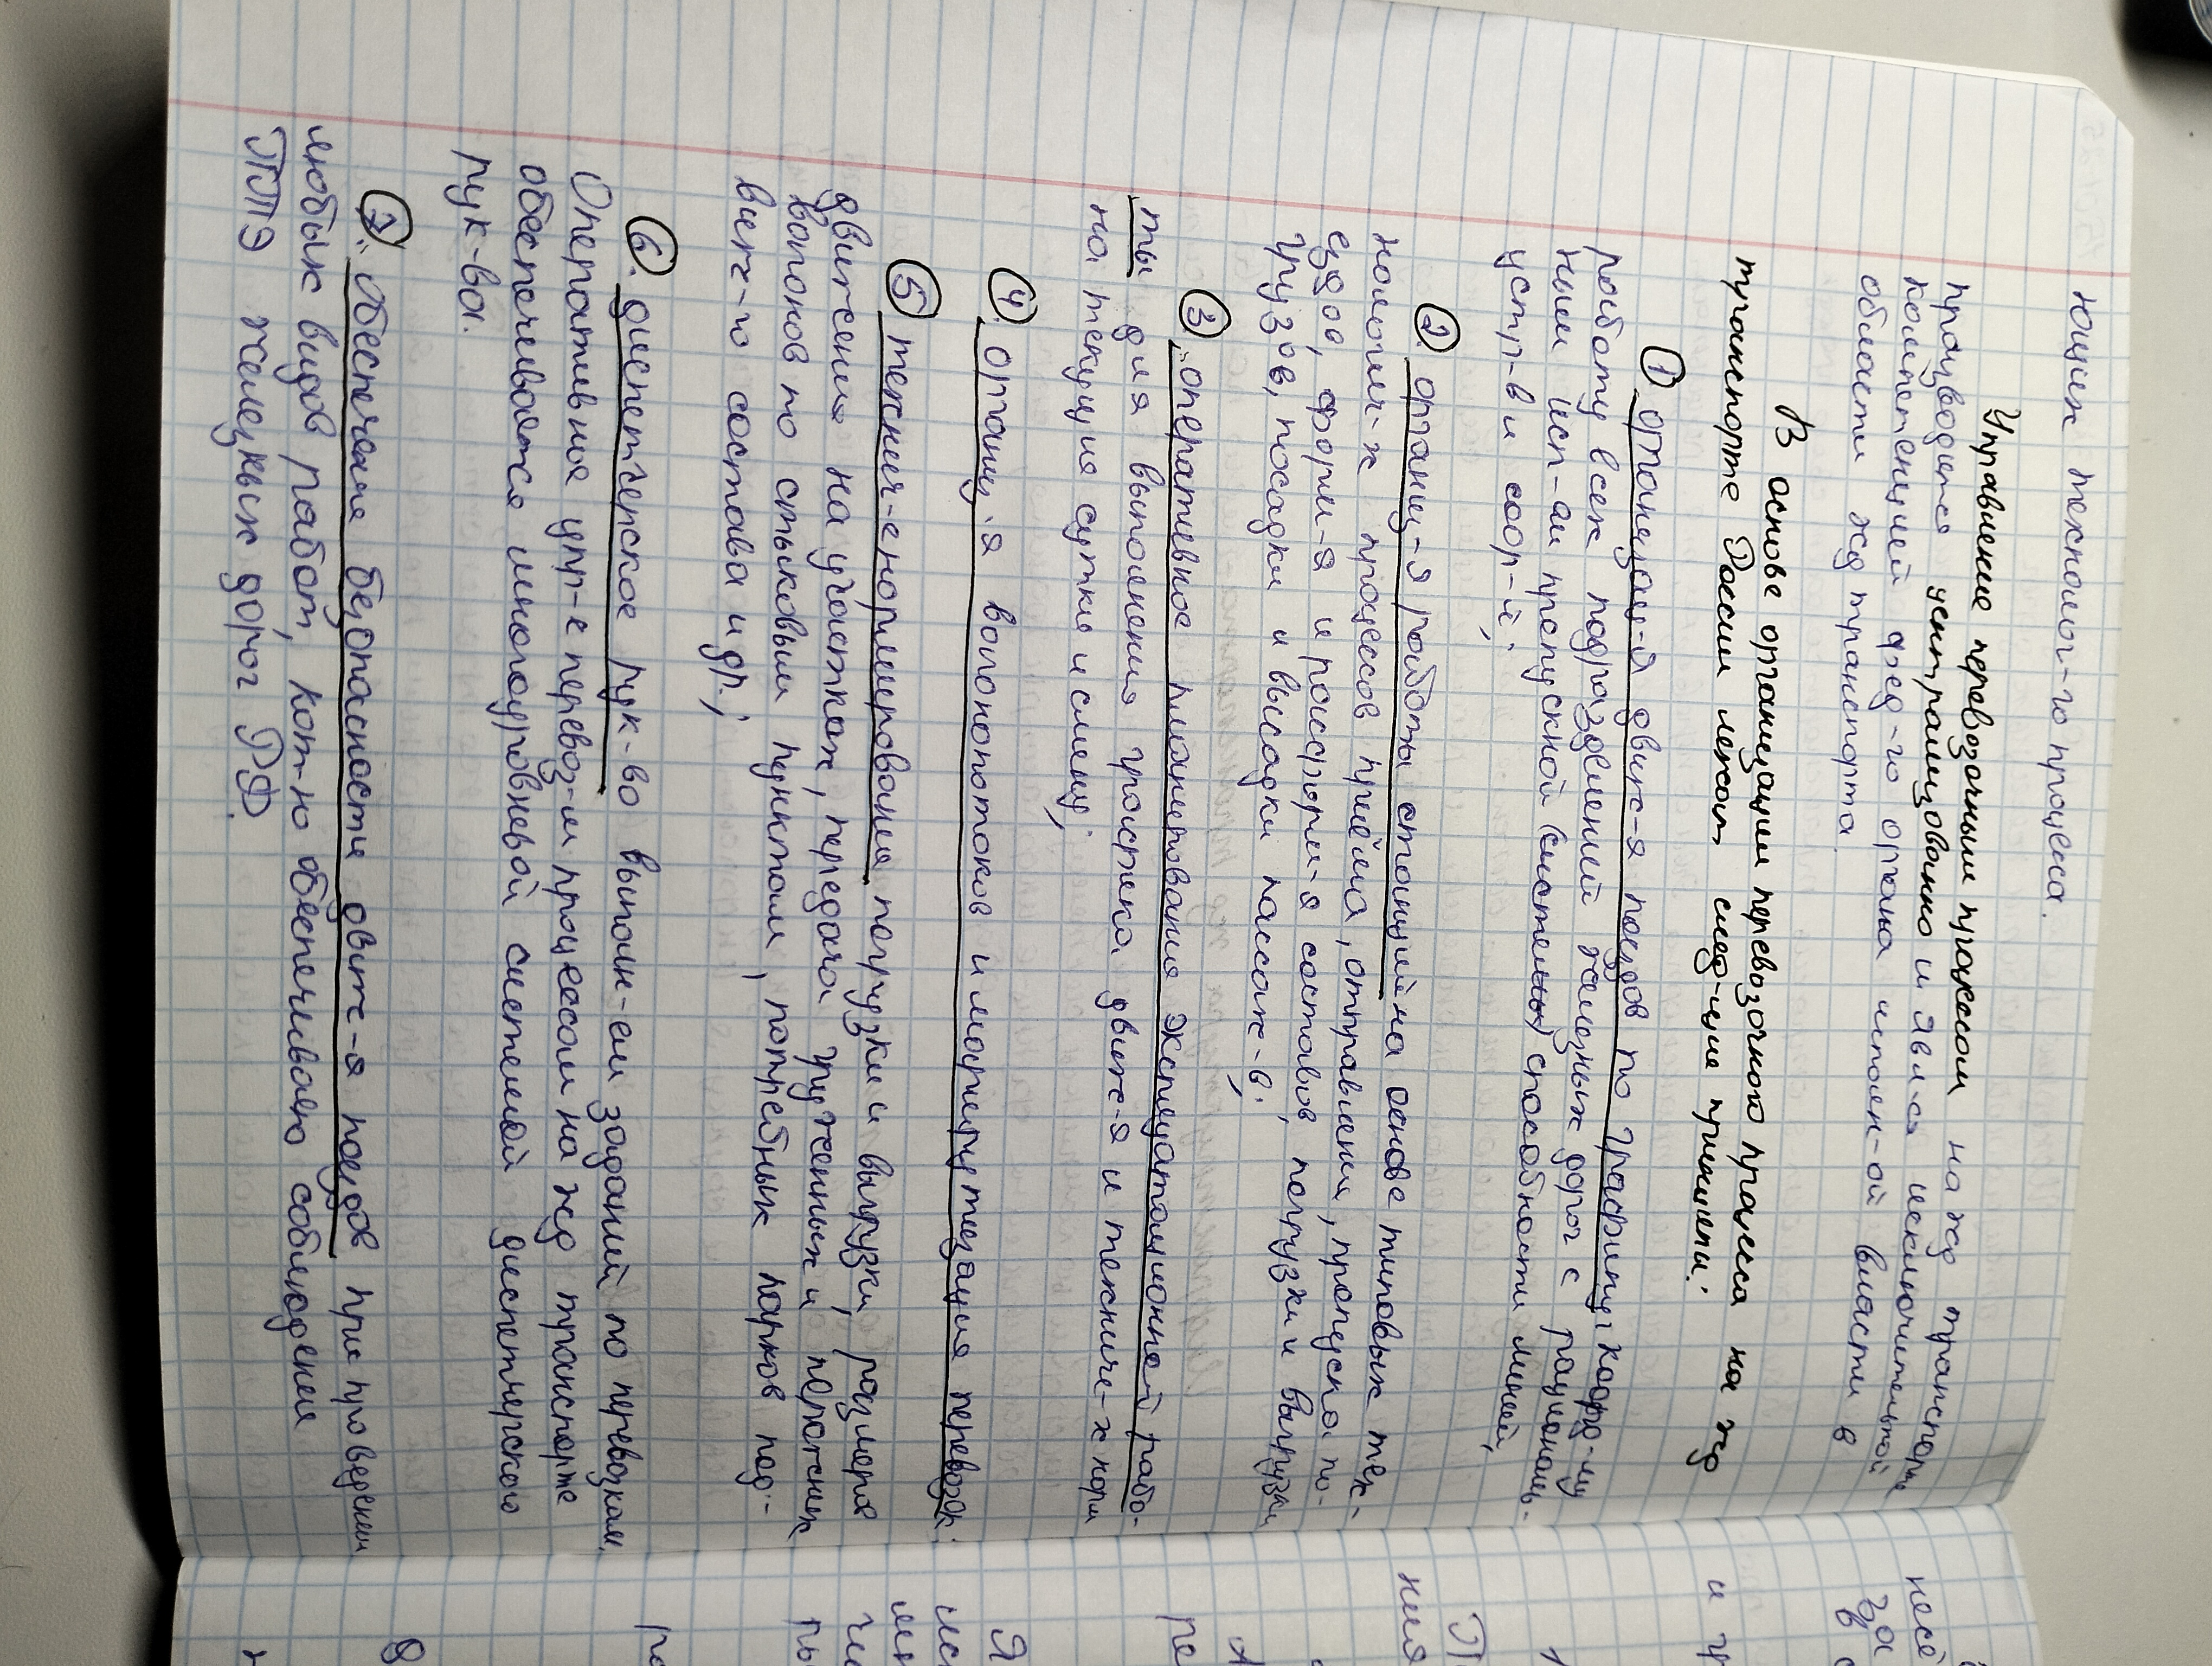 ющих технолог-го процесса.
Управление перевозочным процессом на жд транспорте
производится централизованно и явл-ся исключительной
компетенцией фед-го органа исполн-ой власти в
области жд транспорта.
В основе организации перевозочного процесса на жд
транспорте России лежат след-щие принципы:
① организац-я движ-я поездов по графику, коорд-му
работу всех подразделений железных дорог с рациональ-
ным исп-ем пропускной способности линий,
устр-в и соор-й;
② организ-я работы станций на основе типовых тех-
нологич-х процессов приёма, отправления, пропуска по-
ездов, форм-я и расформ-я составов, погрузки и выгрузки
грузов, посадки и высадки пассаж-в;
③ оперативное планирование эксплуатационной рабо-
ты для выполнения графика движ-я и техниче-х норм
на текущие сутки и смену;
④ организ-я вагонопотоков и маршрутизация перевозок;
⑤ технич-е нормирование погрузки и выгрузки, размера
движения на участках, передача груженных и порожних
вагонов по стыковым пунктам, потребных парков под-
виж-го состава и др.;
⑥ диспетчерское рук-во выполн-ем заданий по перевозкам.
Оперативное упр-е перевоз-м процессом на жд транспорте
обеспечивается многоуровневой системой диспетчерского
рук-ва.
⑦ обеспечение безопасности движ-я поездов при проведении
любых видов работ, кот-ю обеспечиваю соблюдение
ПТЭ железных дорог РФ.
несё
за
в
и гр
1
П
ния
А
ре
Я
ис
мн
ги
пы
ра
8
н